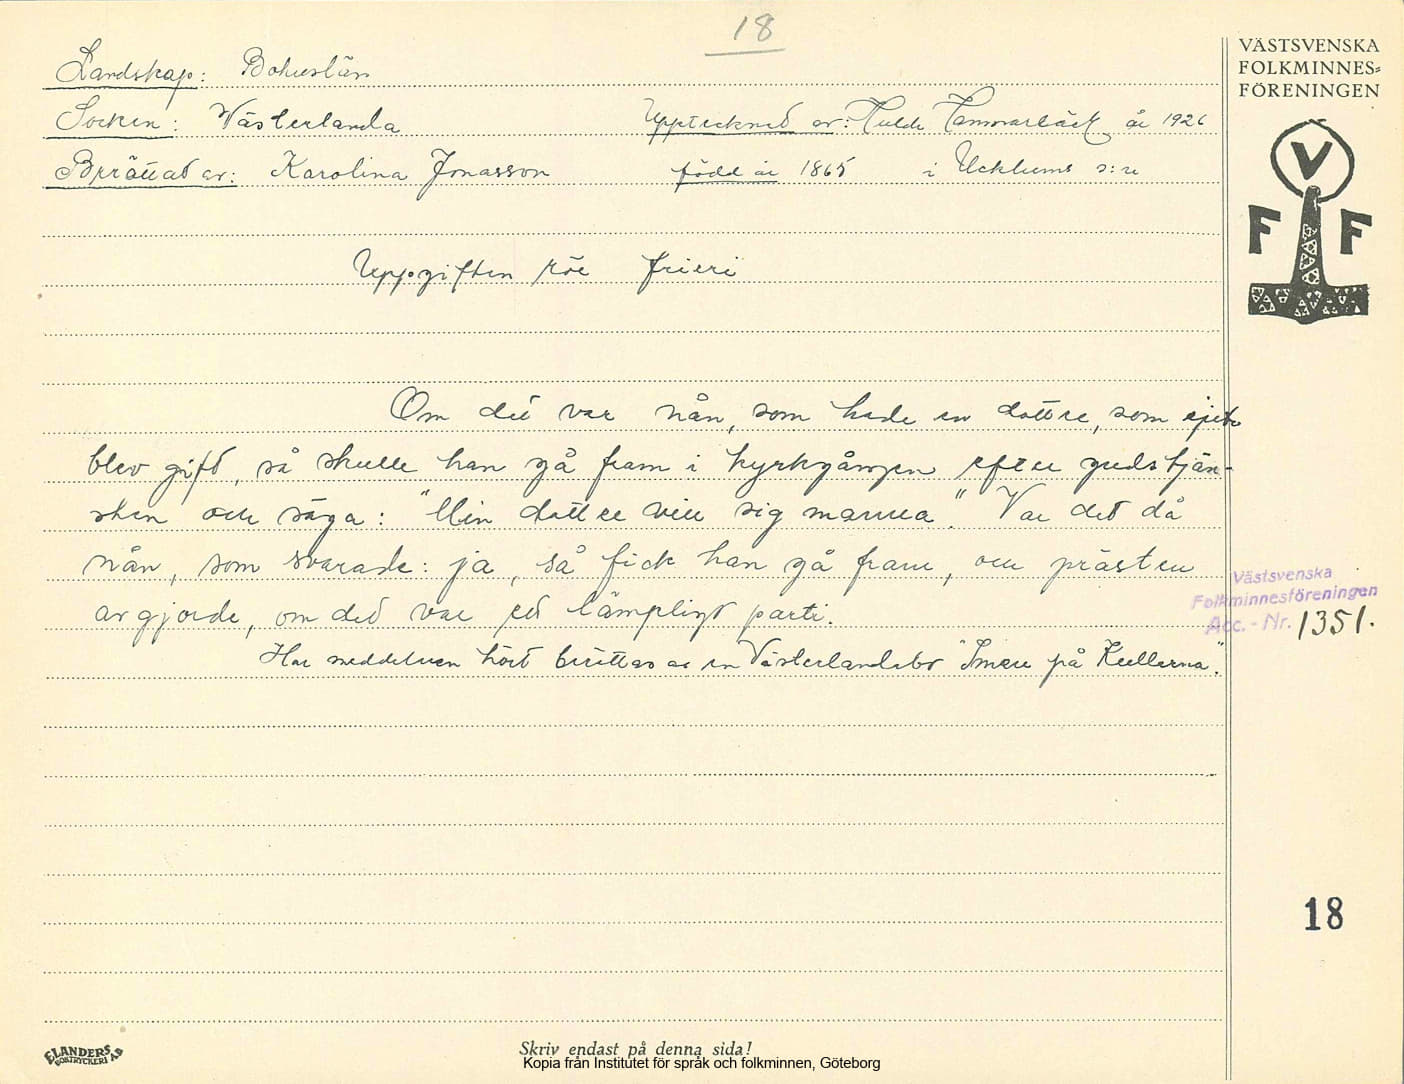 18
Landskap: Bohuslän
VÄSTSVENSKA
FOLKMINNES=
FÖRENINGEN
Socken: Västerlanda Upptecknat av: Hulda Hammarbäck år 1926
Berättat av: Karolina Jonasson född år 1865 i Ucklums s:n
V
F F
Uppgiften rör frieri
Om det var nån, som hade en dotter, som ej
blev gift, så skulle han gå fram i kyrkgången efter gudstjän-
sten och säga: "Min dotter vill sig manna". Var det då
nån, som svarade: ja, så fick han gå fram, och prästen
avgjorde, om det var ett lämpligt parti.
Har meddelaren hört berättas av en Västerlandabo på Kullarna".
Västsvenska
Folkminnesföreningen
Acc.-Nr. 1351.
18
ELANDERS
BOKTRYCKERI AB
Skriv endast på denna sida!
Kopia från Institutet för språk och folkminnen, Göteborg